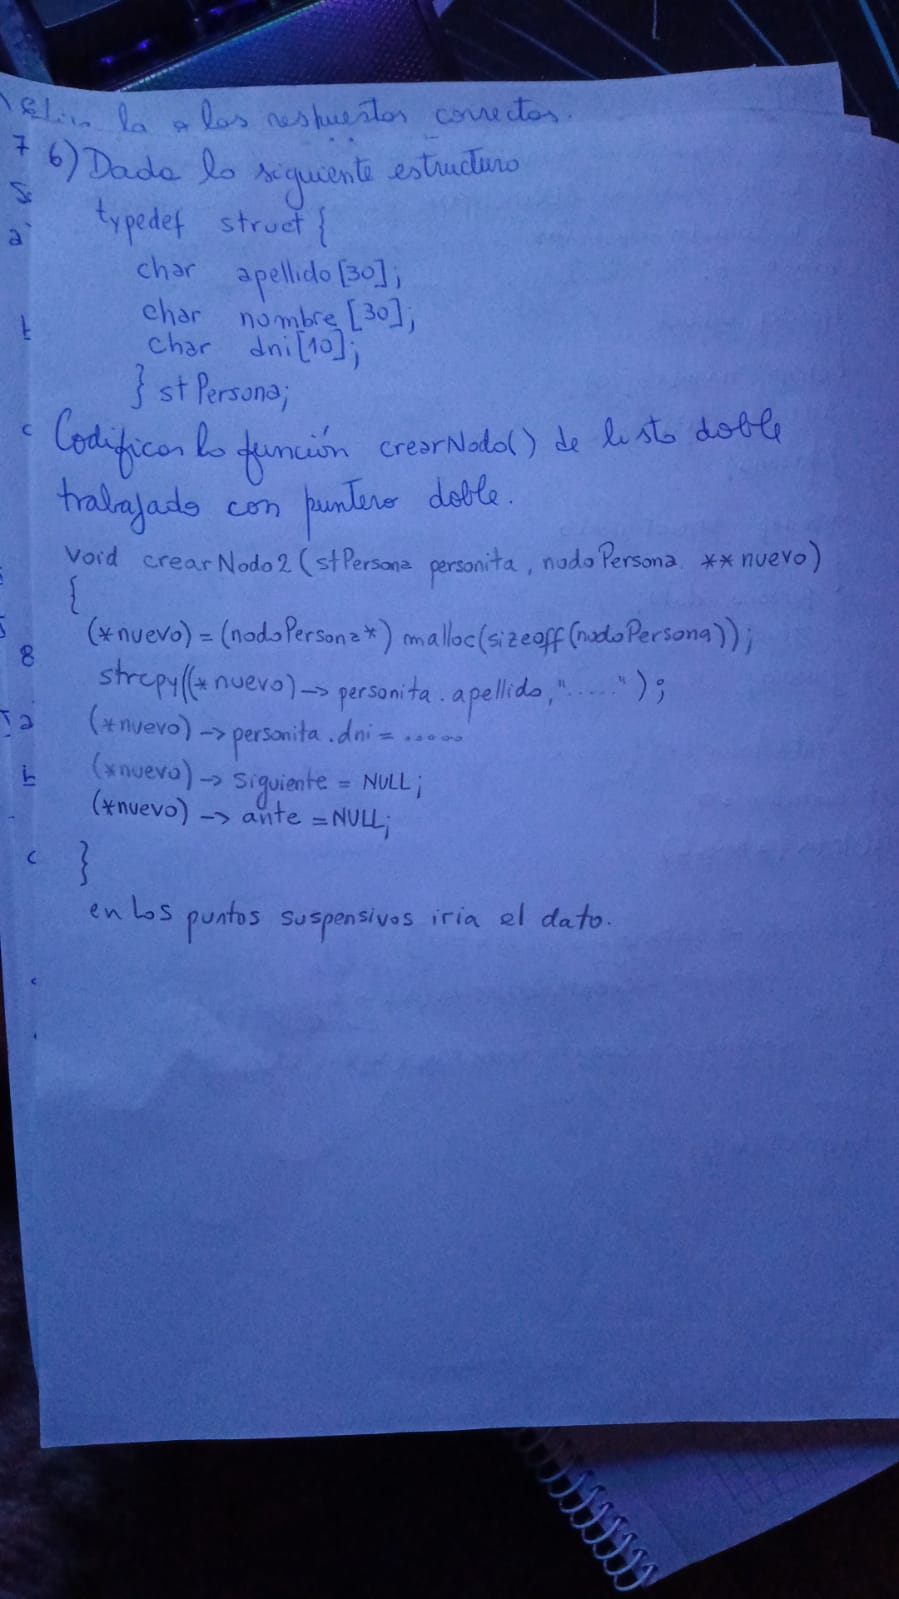 la o las respuestas correctas.
7
6) Dada la siguiente estructura
typedef struct {
a
char apellido [30];
char nombre [30];
char dni [10];
} stPersona;
c
Codificar la función crearNodo() de lista doble
trabajado con puntero doble.
void crearNodo2 (stPersona personita, nodoPersona **nuevo)
{
(*nuevo) = (nodoPersona*) malloc(sizeoff(nodoPersona));
8
strcpy((*nuevo)->personita.apellido,".....");
a
(*nuevo)->personita.dni = .....
b
(*nuevo) -> siguiente = NULL;
(*nuevo) -> ante = NULL;
c
}
en los puntos suspensivos iria el dato.